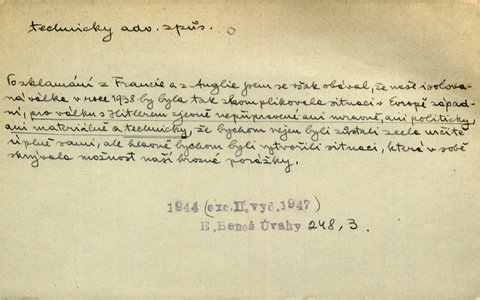 technicky adv. způs.
Po zklamání z Francie a z Anglie jsem se však obával, že naše isolova-
ná válka v roce 1938 by byla tak zkomplikovala situaci v Evropě západ-
ní, pro válku s Hitlerem zjevně nepřipravené ani mravně, ani politicky,
ani materiálně a technicky, že bychom nejen byli zůstali zcela určitě
úplně sami, ale hlavně bychom byli vytvořili situaci, která v sobě
skrývala možnost naší hrozné porážky.
1944 (exc. II. vyd. 1947)
E. Beneš Úvahy 248, 3.